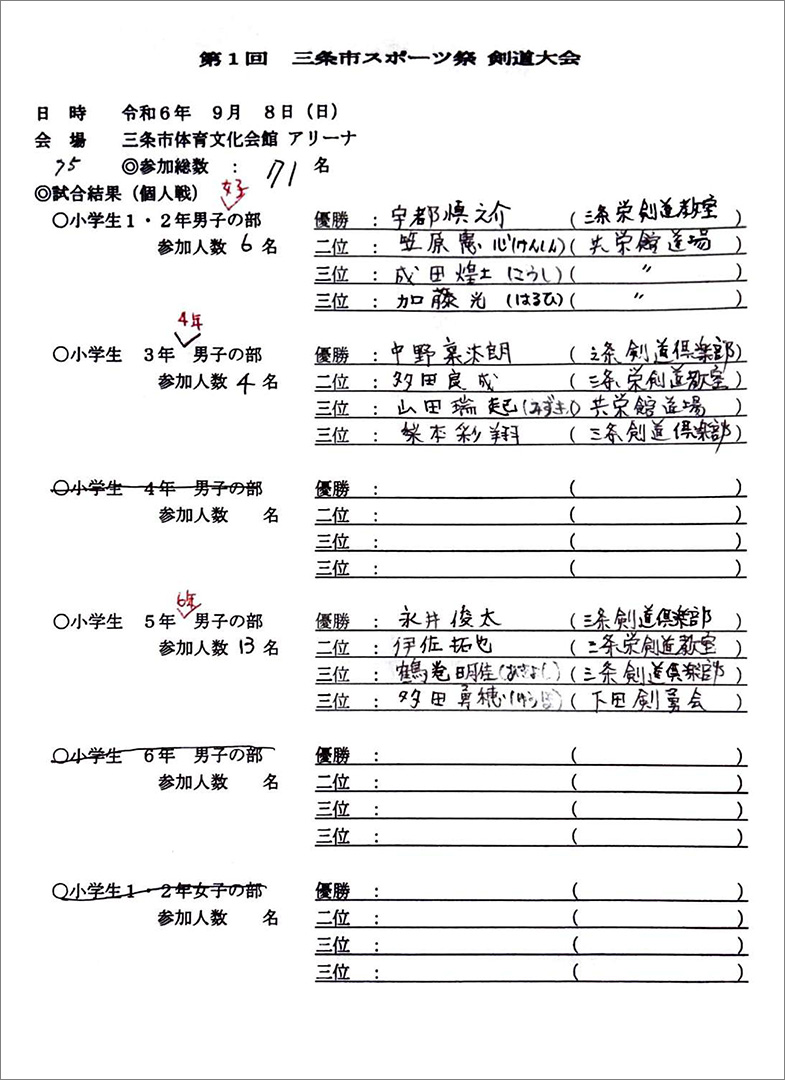 第1回 三条市スポーツ祭 剣道大会
日 時 令和6年 9月 8日(日)
会 場 三条市体育文化会館 アリーナ
75 ◎参加総数 : 71 名
◎試合結果(個人戦)
女子
○小学生1・2年男子の部 優勝 : 宇都慎之介 (三条栄剣道教室)
参加人数 6 名 二位 : 笠原 恵心(けんしん) (共栄館道場)
三位 : 成田煌士(こうし) ( 〃 )
三位 : 加藤光(はるひ) ( 〃 )
4年
○小学生 3年 男子の部 優勝 : 中野 (三条剣道倶楽部)
参加人数 4 名 二位 : 多田良成 (三条栄剣道教室)
三位 : 山田瑞起(みずき) 共栄館道場 )
三位 : 柴本彩翔 (三条剣道倶楽部)
○小学生 4年 男子の部 優勝 : ( )
参加人数 名 二位 : ( )
三位 : ( )
三位 : ( )
6年
○小学生 5年 男子の部 優勝 : 永井俊太 (三条剣道倶楽部)
参加人数 13 名 二位 : 伊佐拓也 (三条栄剣道教室)
三位 : 鶴巻明佳(あきよし) (三条剣道倶楽部)
三位 : 多田勇穂 (下田剣勇会)
○小学生 6年 男子の部 優勝 : ( )
参加人数 名 二位 : ( )
三位 : ( )
三位 : ( )
○小学生1・2年女子の部 優勝 : ( )
参加人数 名 二位 : ( )
三位 : ( )
三位 : ( )